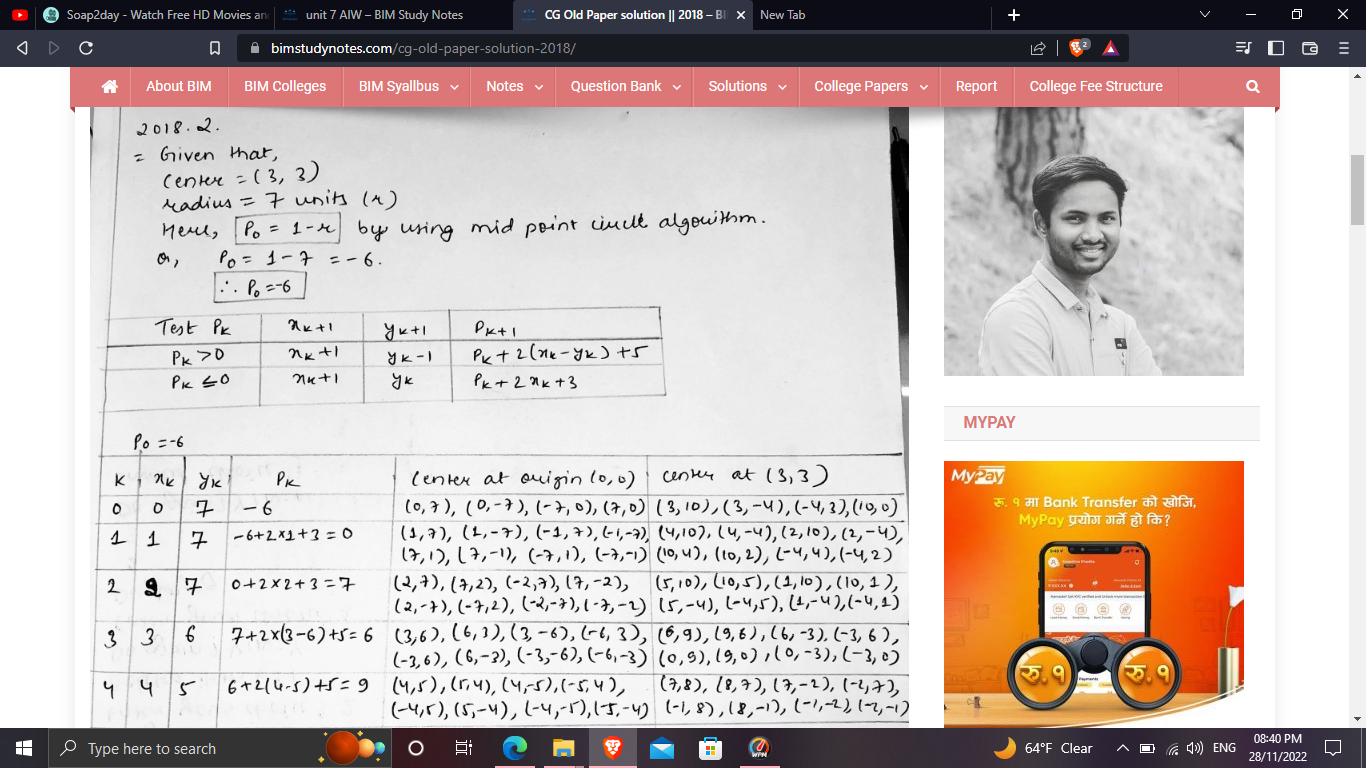 Soap2day - Watch Free HD Movies an
unit 7 AIW – BIM Study Notes
CG Old Paper solution || 2018 – BI
New Tab
bimstudynotes.com/cg-old-paper-solution-2018/
2
About BIM
BIM Colleges
BIM Syallbus
Notes
Question Bank
Solutions
College Papers
Report
College Fee Structure
2018.2.
= Given that,
center = (3, 3)
radius = 7 units (r)
Here, P₀ = 1-r by using mid point circle algorithm.
Or, P₀ = 1-7 = -6.
∴ P₀ = -6
Test Pk xk+1 yk+1 Pk+1
Pk >0 xk+1 yk-1 Pk + 2(xk-yk) +5
Pk ≤0 xk+1 yk Pk + 2xk+3
P₀ = -6
K xk yk Pk Center at origin (0,0) center at (3,3)
0 0 7 -6 (0,7), (0,-7), (-7,0), (7,0) (3,10), (3,-4), (-4,3), (10,0)
1 1 7 -6+2×1+3=0 (1,7), (1,-7), (-1,7), (-1,-7), (4,10), (4,-4), (2,10), (2,-4),
(7,1), (7,-1), (-7,1), (-7,-1) (10,4), (10,2), (-4,4), (-4,2)
2 2 7 0+2×2+3=7 (2,7), (7,2), (-2,7), (7,-2), (5,10), (10,5), (1,10), (10,1),
(2,-7), (-7,2), (-2,-7), (-7,-2) (5,-4), (-4,5), (1,-4), (-4,1)
3 3 6 7+2×(3-6)+5=6 (3,6), (6,3), (3,-6), (-6,3), (6,9), (9,6), (6,-3), (-3,6),
(-3,6), (6,-3), (-3,-6), (-6,-3) (0,9), (9,0), (0,-3), (-3,0)
4 4 5 6+2(4-5)+5=9 (4,5), (5,4), (4,-5), (-5,4), (7,8), (8,7), (7,-2), (-2,7),
(-4,5), (5,-4), (-4,-5), (-5,-4) (-1,8), (8,-1), (-1,-2), (-2,-1)
MYPAY
MyPay
रू. १ मा Bank Transfer को खोजि,
MyPay प्रयोग गर्ने हो कि?
रू.१ रू.१
Type here to search
64°F Clear
ENG
08:40 PM
28/11/2022